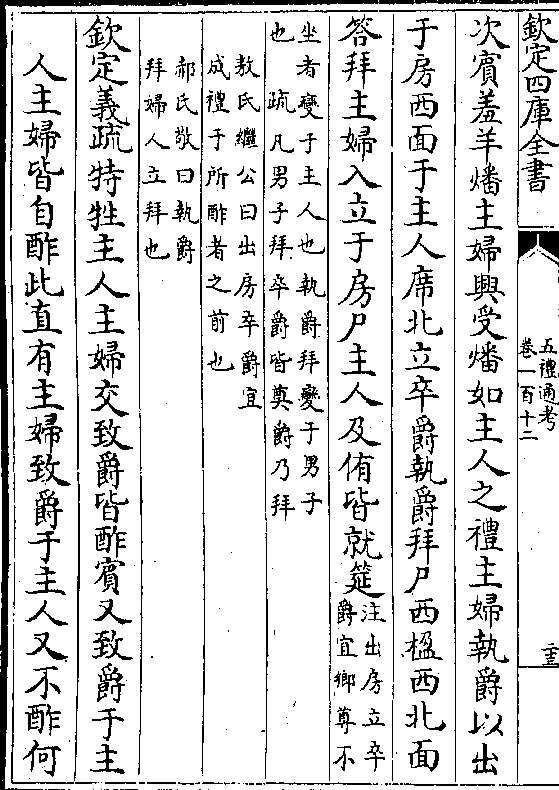 欽定四庫全書
五禮通考
卷一百十二
次賓羞羊燔主婦興受燔如主人之禮主婦執爵以出
于房西面于主人席北立卒爵執爵拜尸西楹西北面
答拜主婦入立于房尸主人及侑皆就筵
注出房立卒
爵宜鄉尊不
坐者變于主人也執爵拜變于男子
也 疏凡男子拜卒爵皆奠爵乃拜
敖氏繼公曰出房卒爵宜
成禮于所酢者之前也
郝氏敬曰執爵
拜婦人立拜也
欽定義疏特牲主人主婦交致爵皆酢賓又致爵于主
人主婦皆自酢此直有主婦致爵于主人又不酢何